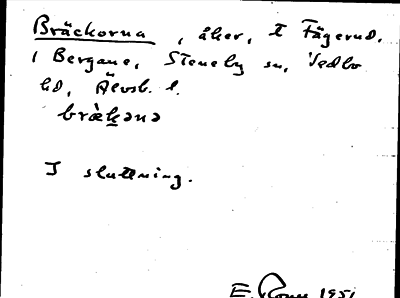 Bräckorna, åker, t Fägerud,
i Bergane, Steneby sn, Vedbo
hd, Älvsb. l.
bràkənə
I sluttning.
E. 1951